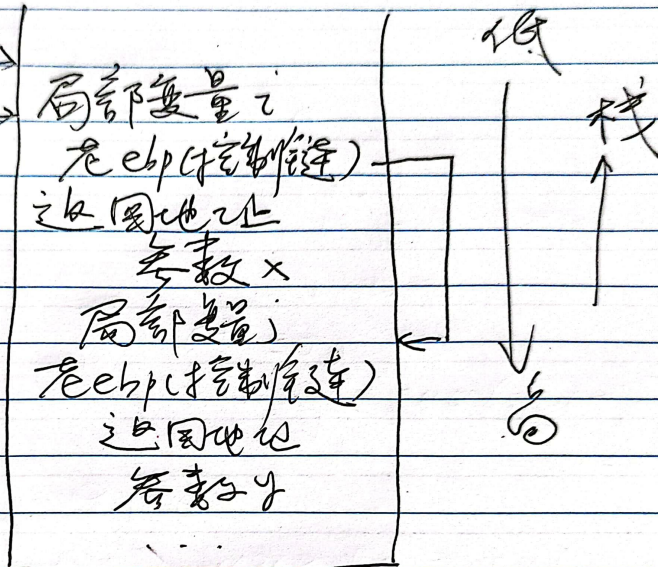 局部变量i
老ebp(控制链)
返回地址
参数x
局部变量j
老ebp(控制链)
返回地址
参数y
...
低
栈
高